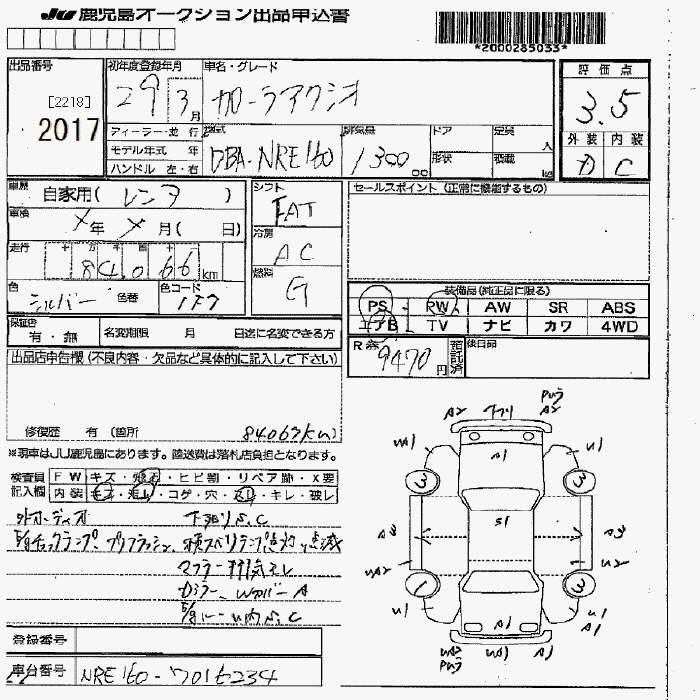 JU 鹿児島オークション出品申込書
*2000285033*
出品番号
[2218]
2017
初年度登録年月
29 3月
車名・グレード
カローラアクシオ
評価点
3.5
外装 内装
D C
ディーラー・並行
モデル年式 年
ハンドル 左・右
型式
DBA-NRE160
排気量
1300
cc
ドア
形状
定員
人
積載
kg
車歴
自家用(レンタ)
車検
年 月( 日)
走行
84,066km
色
シルバー 色替
色コード
1F7
シフト
FAT
冷房
AC
燃料
G
セールスポイント(正常に機能するもの)
装備品(純正品に限る)
PS RW AW SR ABS
エアB TV ナビ カワ 4WD
保証書
有・無
名変期限 月 日迄に名変できる方
R券
9470円
預託済
後日品
出品店申告欄(不良内容・欠品など具体的に記入して下さい)
修復歴 有(箇所
84067km)
※現車はJU鹿児島にあります。陸送費は落札店負担となります。
検査員
記入欄
FW キズ・飛石・ヒビ割・リペア跡・X要
内装 キズ・汚レ・コゲ・穴・スレ・キレ・破レ
外オーディオ 下廻りS,C
E/gチェックランプ、プリクラッシュ、横スベリランプ点灯、点滅
マフラー排気モレ
Dミラー、WカバーA
E/gルーム内S,C
A2 下フリ A2
pwフ
UA1 U1
A1
3 3
S1
A3 A3
UA2 U2
1 3
U1 U1
A1
A1
UA2 U1 A1
pwフ
登録番号
車台番号
NRE160-7016234